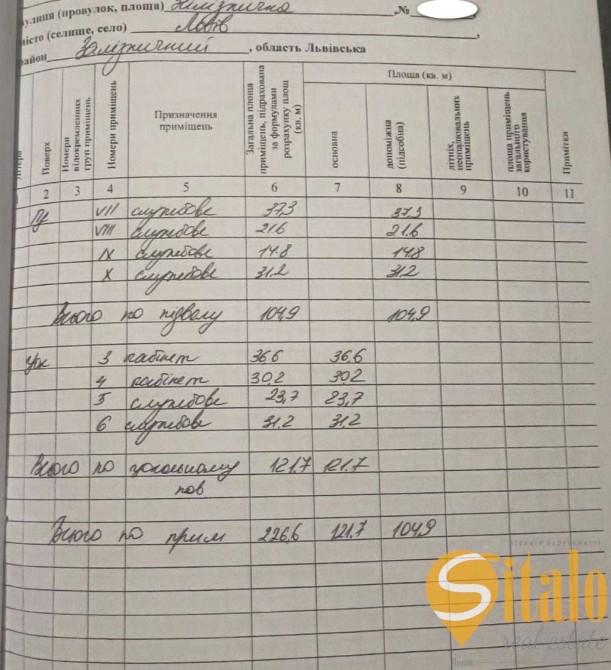 вулиця (провулок, площа) Залізнична ,№
місто (селище, село) Львів ,
район Залізничний , область Львівська
Літера
Поверх
Номери відокремлених груп приміщень
Номери приміщень
Призначення приміщень
Загальна площа приміщень, підрахована за формулами розрахунку площ (кв. м)
Площа (кв. м)
основна
допоміжна (підсобна)
літніх, неопалювальних приміщень
площа приміщень загального користування
Примітки
2 3 4 5 6 7 8 9 10 11
VII службове 37,3 37,3
VIII службове 21.6 21.6
IX службове 14.8 14.8
X службове 31.2 31.2
Всього по підвалу 104,9 104,9
3 кабінет 36.6 36,6
4 кабінет 30,2 30,2
5 службове 23,7 23,7
6 службове 31.2 31.2
Всього по цокольному 121,7 121,7
пов
Всього по прим 226,6 121,7 104,9
Sitalo
real estate